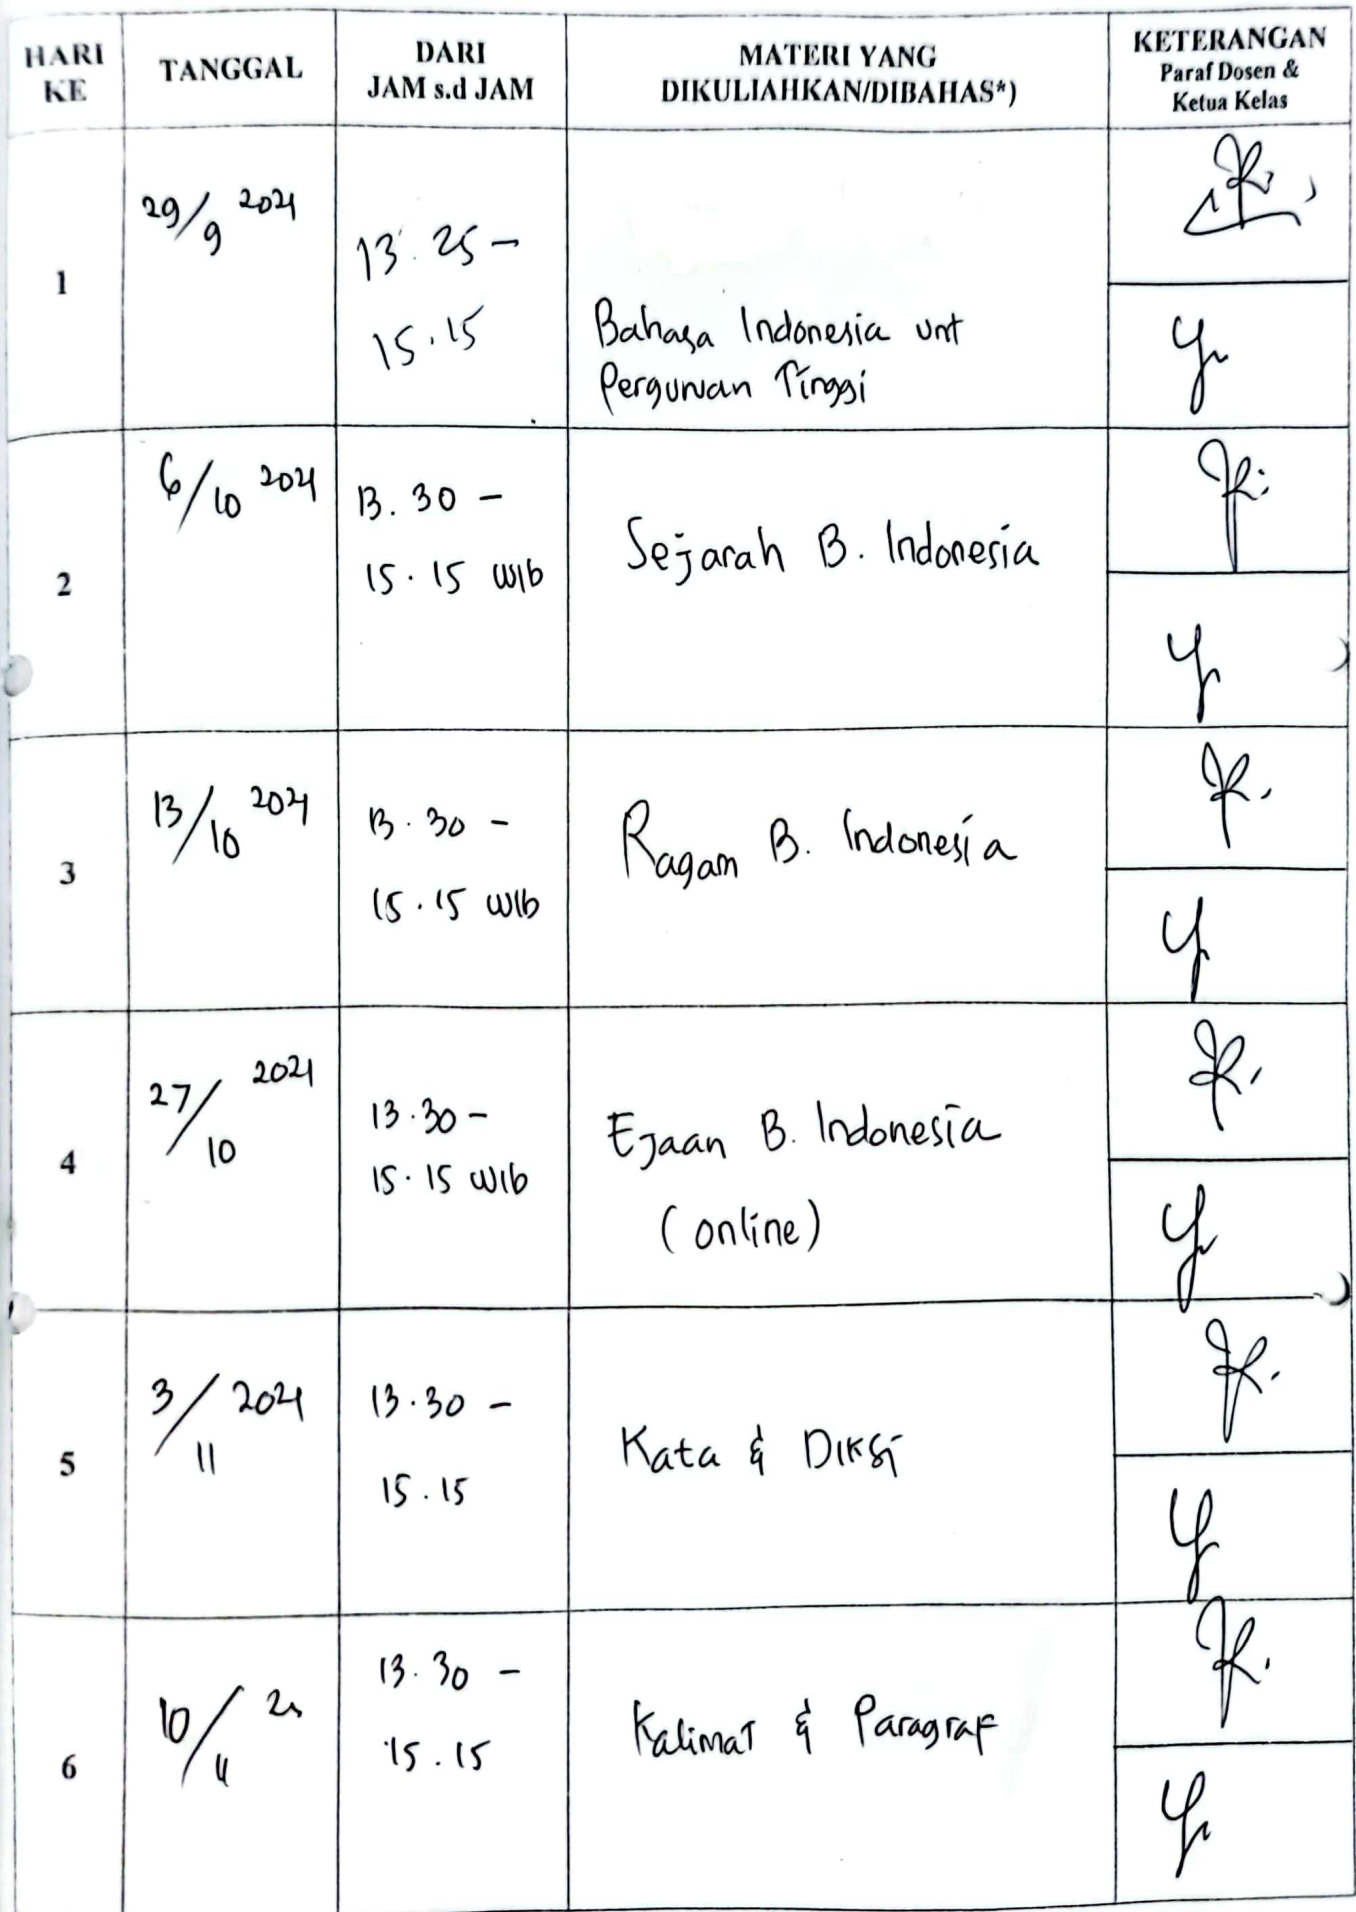 HARI KE
TANGGAL
DARI
JAM s.d JAM
MATERI YANG
DIKULIAHKAN/DIBAHAS*)
KETERANGAN
Paraf Dosen &
Ketua Kelas
1
29/9 2021
13.25 -
15.15
Bahasa Indonesia unt
Perguruan Tinggi
2
6/10 2021
13.30 -
15.15 WIB
Sejarah B. Indonesia
3
13/10 2021
13.30 -
15.15 WIB
Ragam B. Indonesia
4
27/10 2021
13.30 -
15.15 WIB
Ejaan B. Indonesia
(online)
5
3/11 2021
13.30 -
15.15
Kata & Diksi
6
10/11 21
13.30 -
15.15
Kalimat & Paragraf